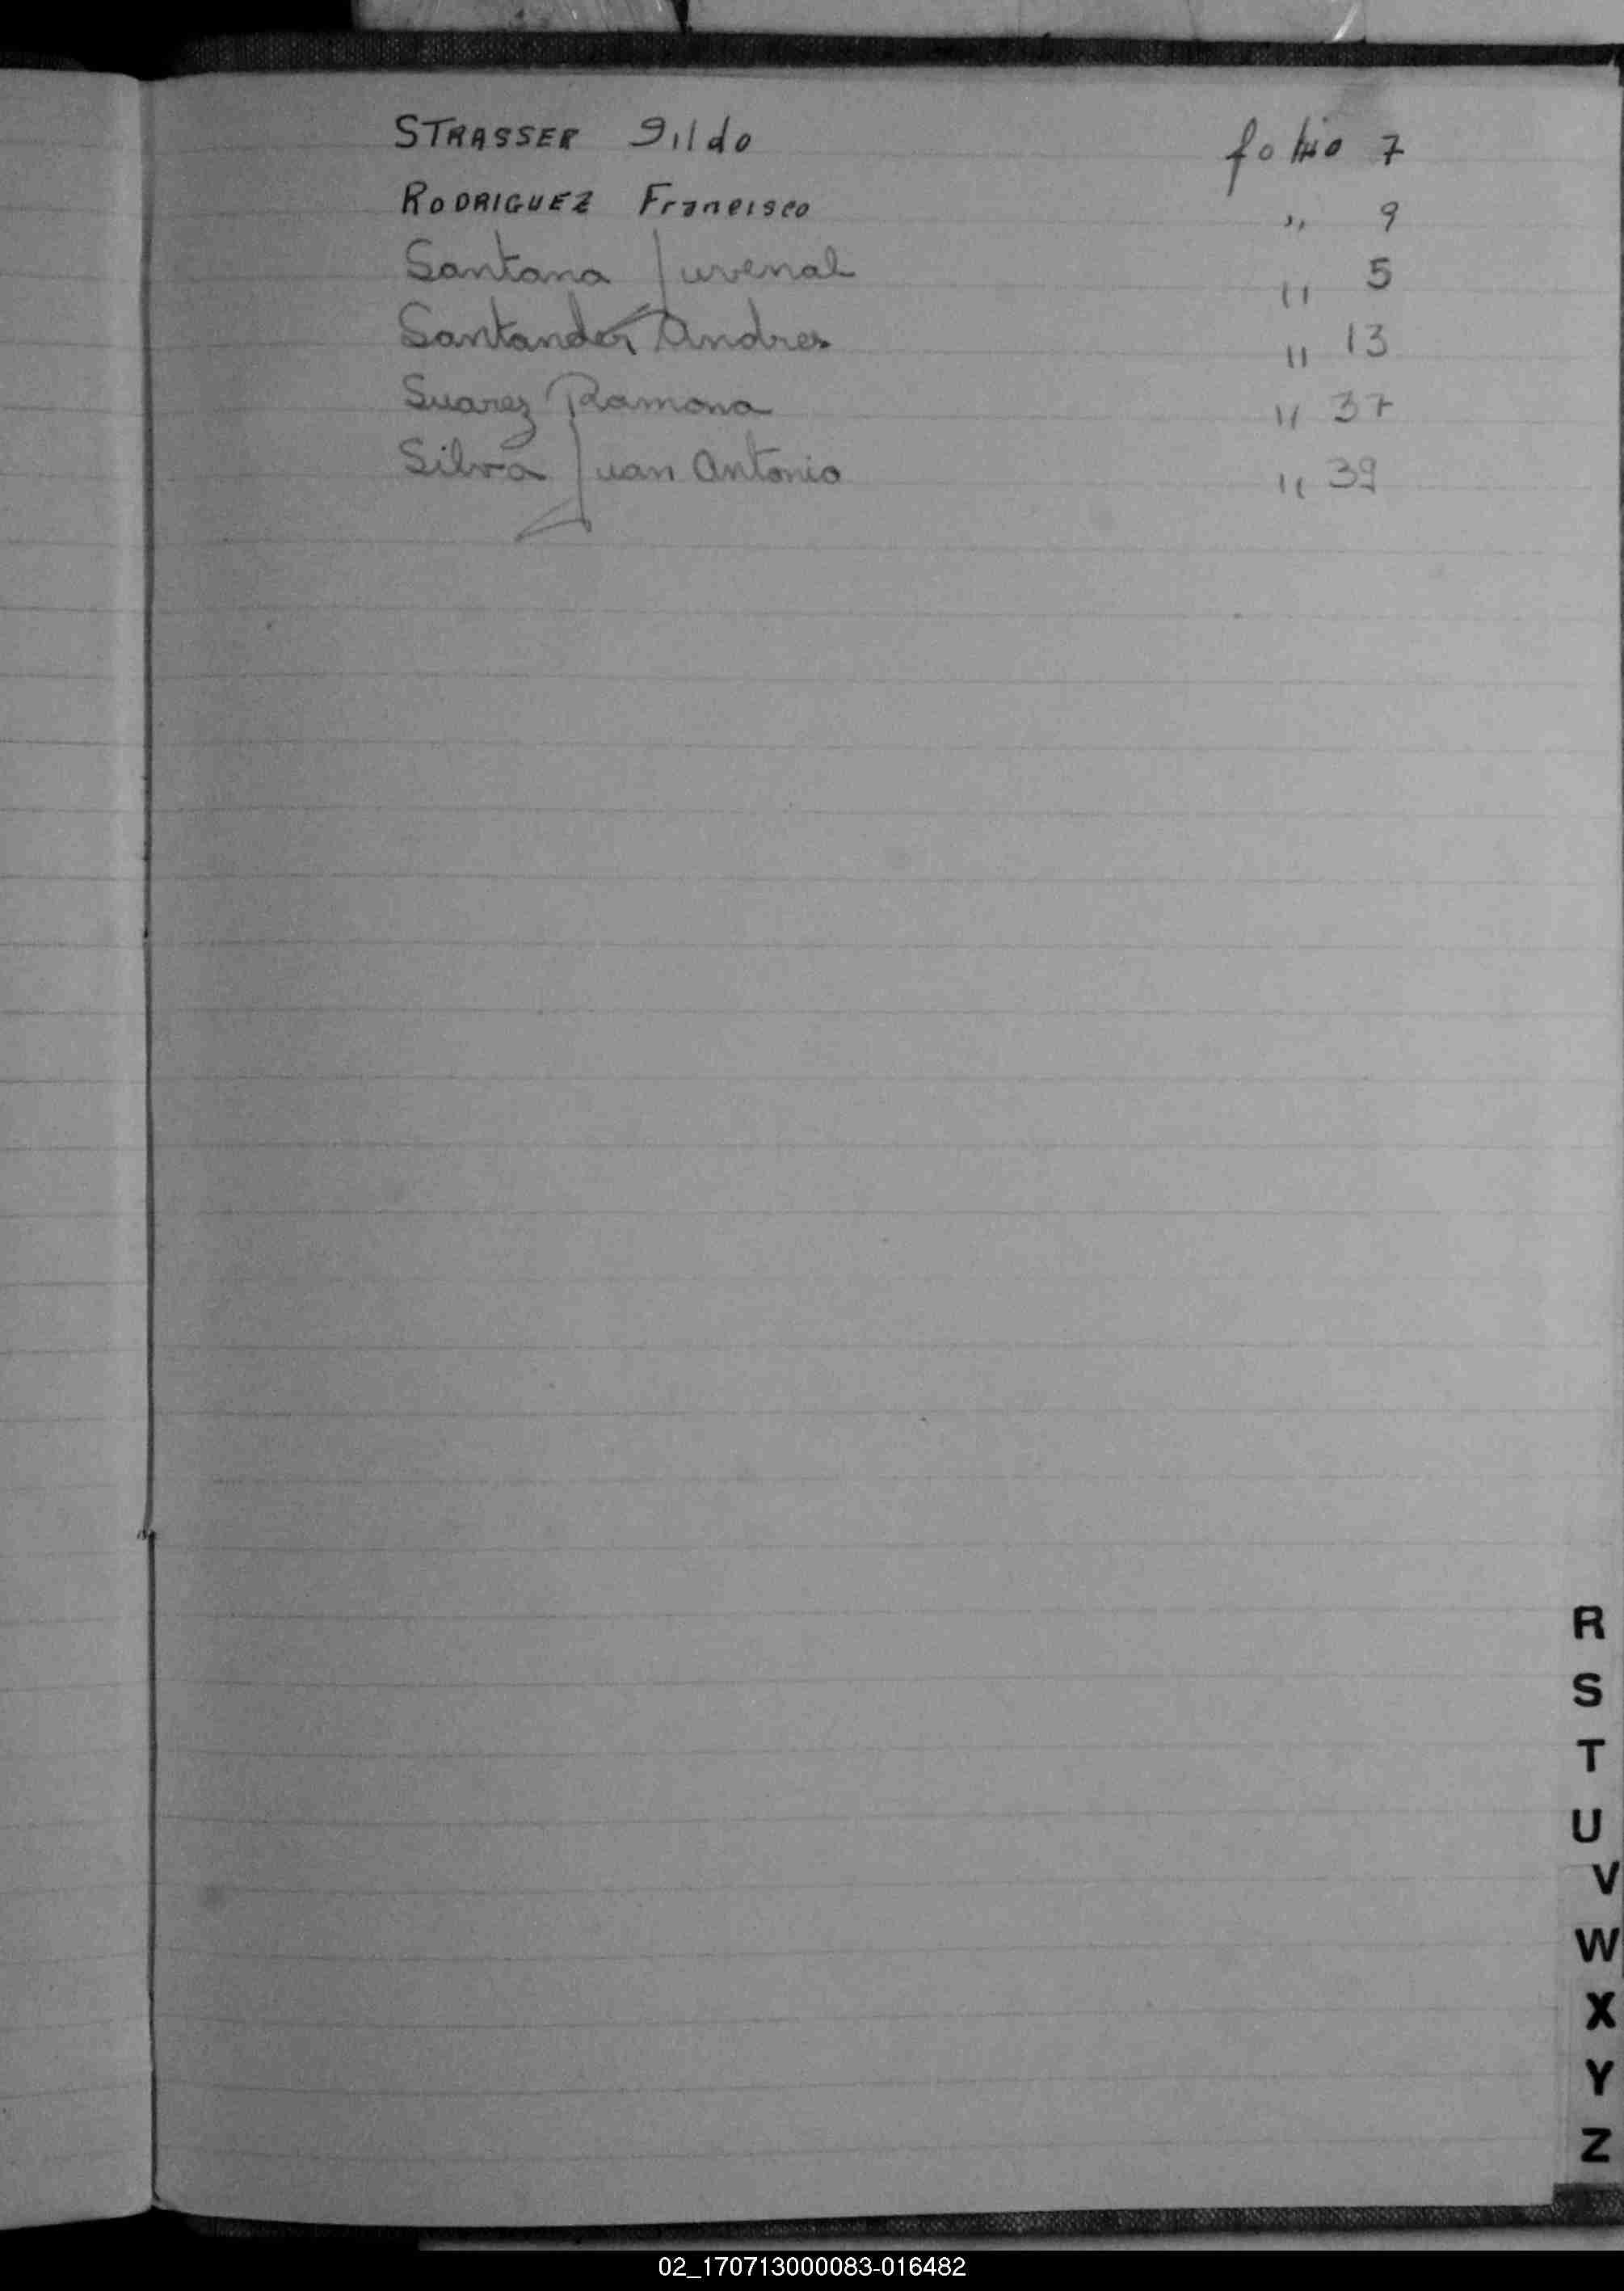 STRASSER Gildo folio 7
RODRIGUEZ Francisco " 9
Santana Juvenal " 5
Santander Andres " 13
Suarez Ramona " 37
Silva Juan Antonio " 39
R
S
T
U
V
W
X
Y
Z
02_170713000083-016482